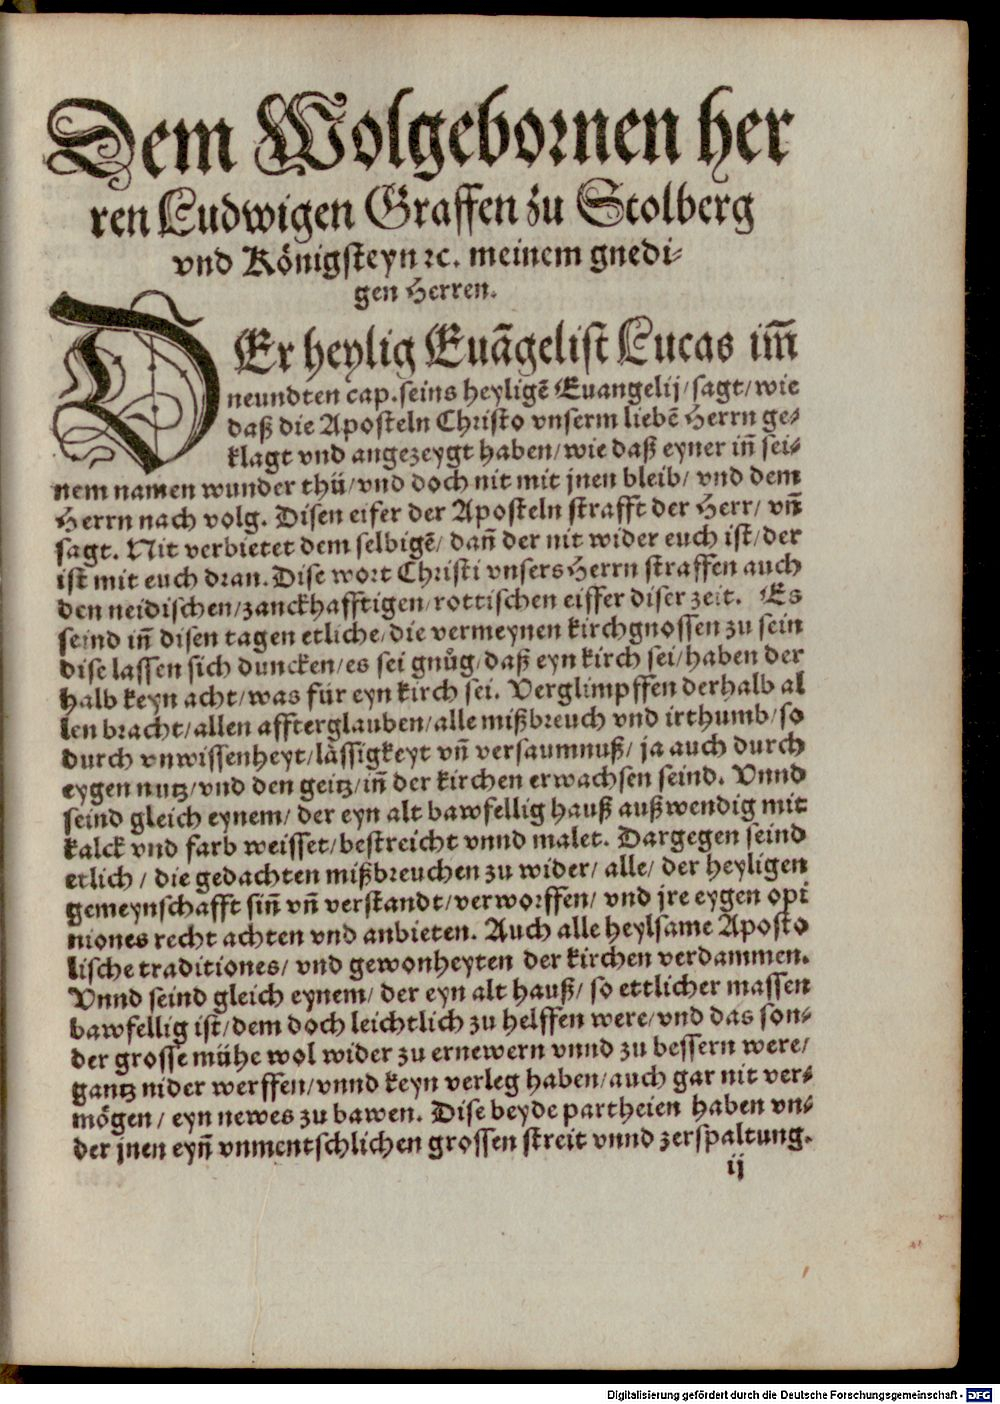 Dem Wolgebornen her
ren Ludwigen Graffen zu Stolberg
vnd Königsteyn ꝛc. meinem gnedi-
gen Herren.
DEr heylig Euãgelist Lucas im̃
neundten cap. seins heyligẽ Euangelij/ sagt/ wie
daß die Aposteln Christo vnserm liebẽ Herrn ge-
klagt vnd angezeygt haben/ wie daß eyner in̄ sei-
nem namen wunder thü/ vnd doch nit mit jnen bleib/ vnd dem
Herrn nach volg. Disen eifer der Aposteln strafft der Herr/ vn̄
sagt. Nit verbietet dem selbigẽ/ dan̄ der nit wider euch ist/ der
ist mit euch dran. Dise wort Christi vnsers Herrn straffen auch
den neidischen/ zanckhafftigen/ rottischen eiffer diser zeit. Es
seind in̄ disen tagen etliche/ die vermeynen kirchgnossen zu sein
dise lassen sich duncken/ es sei gnůg/ daß eyn kirch sei/ haben der
halb keyn acht/ was für eyn kirch sei. Verglimpffen derhalb al
len bracht/ allen affterglauben/ alle mißbreuch vnd irthumb/ so
durch vnwissenheyt/ lässigkeyt vn̄ versaumnuß/ ja auch durch
eygen nutz/ vnd den geitz/ in̄ der kirchen erwachsen seind. Vnnd
seind gleich eynem/ der eyn alt bawfellig hauß außwendig mit
kalck vnd farb weisset/ bestreicht vnnd malet. Dargegen seind
etlich / die gedachten mißbreuchen zu wider/ alle/ der heyligen
gemeynschafft sin̄ vn̄ verstandt/ verworffen/ vnd jre eygen opi
niones recht achten vnd anbieten. Auch alle heylsame Aposto
lische traditiones/ vnd gewonheyten der kirchen verdammen.
Vnnd seind gleich eynem/ der eyn alt hauß/ so ettlicher massen
bawfellig ist/ dem doch leichtlich zu helffen were/ vnd das son-
der grosse mühe wol wider zu ernewern vnnd zu bessern were/
gantz nider werffen/ vnnd keyn verleg haben/ auch gar nit ver-
mögen/ eyn newes zu bawen. Dise beyde partheien haben vn-
der jnen eyn̄ vnmentschlichen grossen streit vnnd zerspaltung.
ij
Digitalisierung gefördert durch die Deutsche Forschungsgemeinschaft - DFG